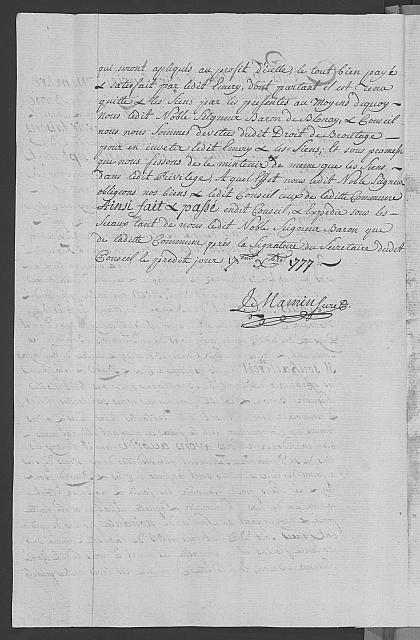 qui seront apliqués au profit d'icelle, le tout bien payé
& satisfait par ledit Emery, dont partant il est tenu
quitte & les Siens par les presentes au Moyen dequoy
nous ledit Noble Seigneur Baron de Blonay, & Conseil
nous nous Sommes devetus dudit Droit de Brouttage
pour en invetir ledit Emery & les Siens, le sous promesse
que nous faisons de le maintenir de meme que les Siens
dans ledit Privilege. A quel Effet nous ledit Noble Seigneur
obligeons nos biens & ledit Conseil ceux de ladite Commune
Ainsi fait & passé endit Conseil, & Expedié sous les
Sceaux tant de nous ledit Noble Seigneur Baron que
de ladite Commune près la Signature du Secretaire dudit
Conseil le predit jour 1777
Mamin Secret.